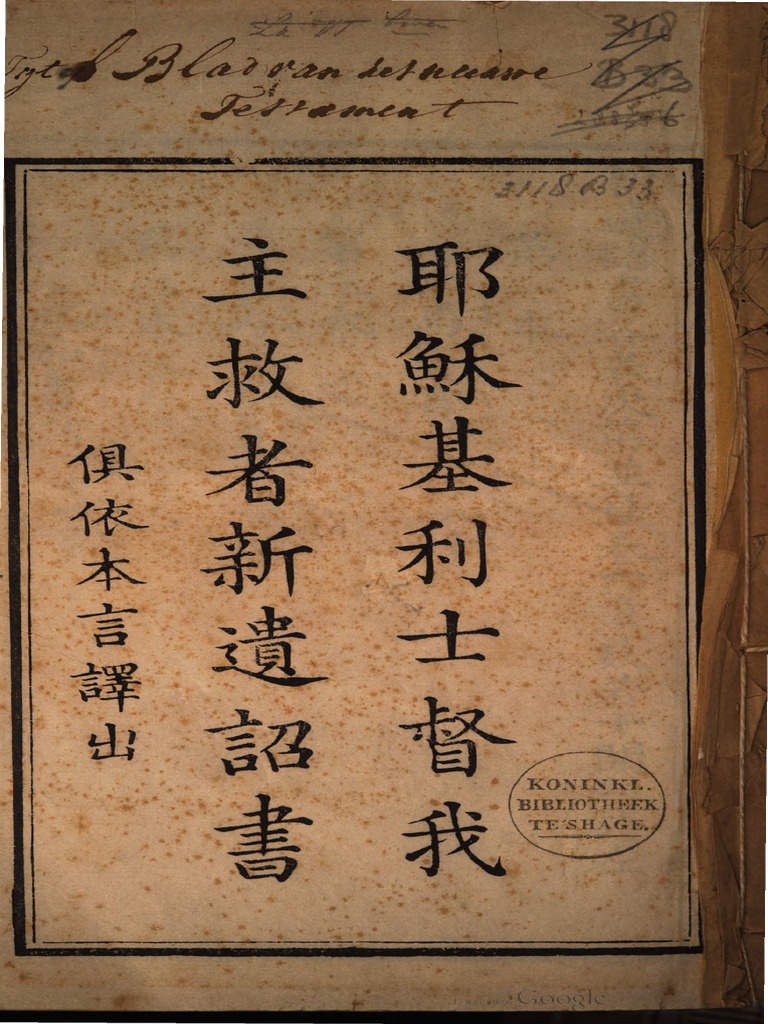 Tytel Blad van het nieuwe
Testament
3118
B 33
3118 B 33
耶穌基利士督我
主救者新遺詔書
俱依本言譯出
KONINKL.
BIBLIOTHEEK
TE'SHAGE.
Google